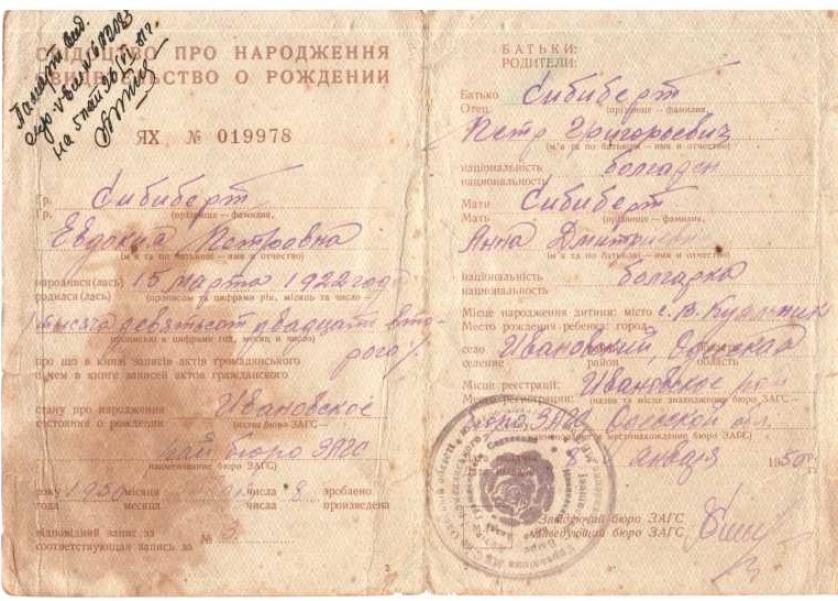 СВІДОЦТВО ПРО НАРОДЖЕННЯ
СВИДЕТЕЛЬСТВО О РОЖДЕНИИ
ЯХ № 019978
Гр. Сибиберт
Гр. (прізвище — фамилия,
Евдокия Петровна
(ім'я та по батькові — имя и отчество)
народився(лась) 15 марта 1922 года
родился(лась) (прописом та цифрами рік, місяць та число —
тысяча девятьсот двадцать вто-
(прописью и цифрами год, месяц и число)
рого
про що в книзі записів актів громадянського
о чем в книге записей актов гражданского
стану про народження Ивановское
состояния о рождении (назва бюро ЗАГС —
рай бюро ЗАГС
наименование бюро ЗАГС)
року 1950 місяця числа 8 зроблено
года месяца числа произведена
відповідний запис за № 3
соответствующая запись за
БАТЬКИ:
РОДИТЕЛИ:
Батько Сибиберт
Отец (прізвище — фамилия,
Петр Григорьевич
(ім'я та по батькові — имя и отчество)
національність болгарин
национальность
Мати Сибиберт
Мать (прізвище — фамилия,
Анна
(ім'я та по батькові — имя и отчество)
національність болгарка
национальность
Місце народження дитини: місто с. В. Куяльник
Место рождения ребенка: город
село Ивановский, Одесская
селение район область
Місце реєстрації: Ивановское рай
Место регистрации: (назва та місце знаходження бюро ЗАГС —
бюро ЗАГС Одесской обл.
наименование и местонахождение бюро ЗАГС)
8 января 1950 г.
Завідуючий бюро ЗАГС
Заведующий бюро ЗАГС